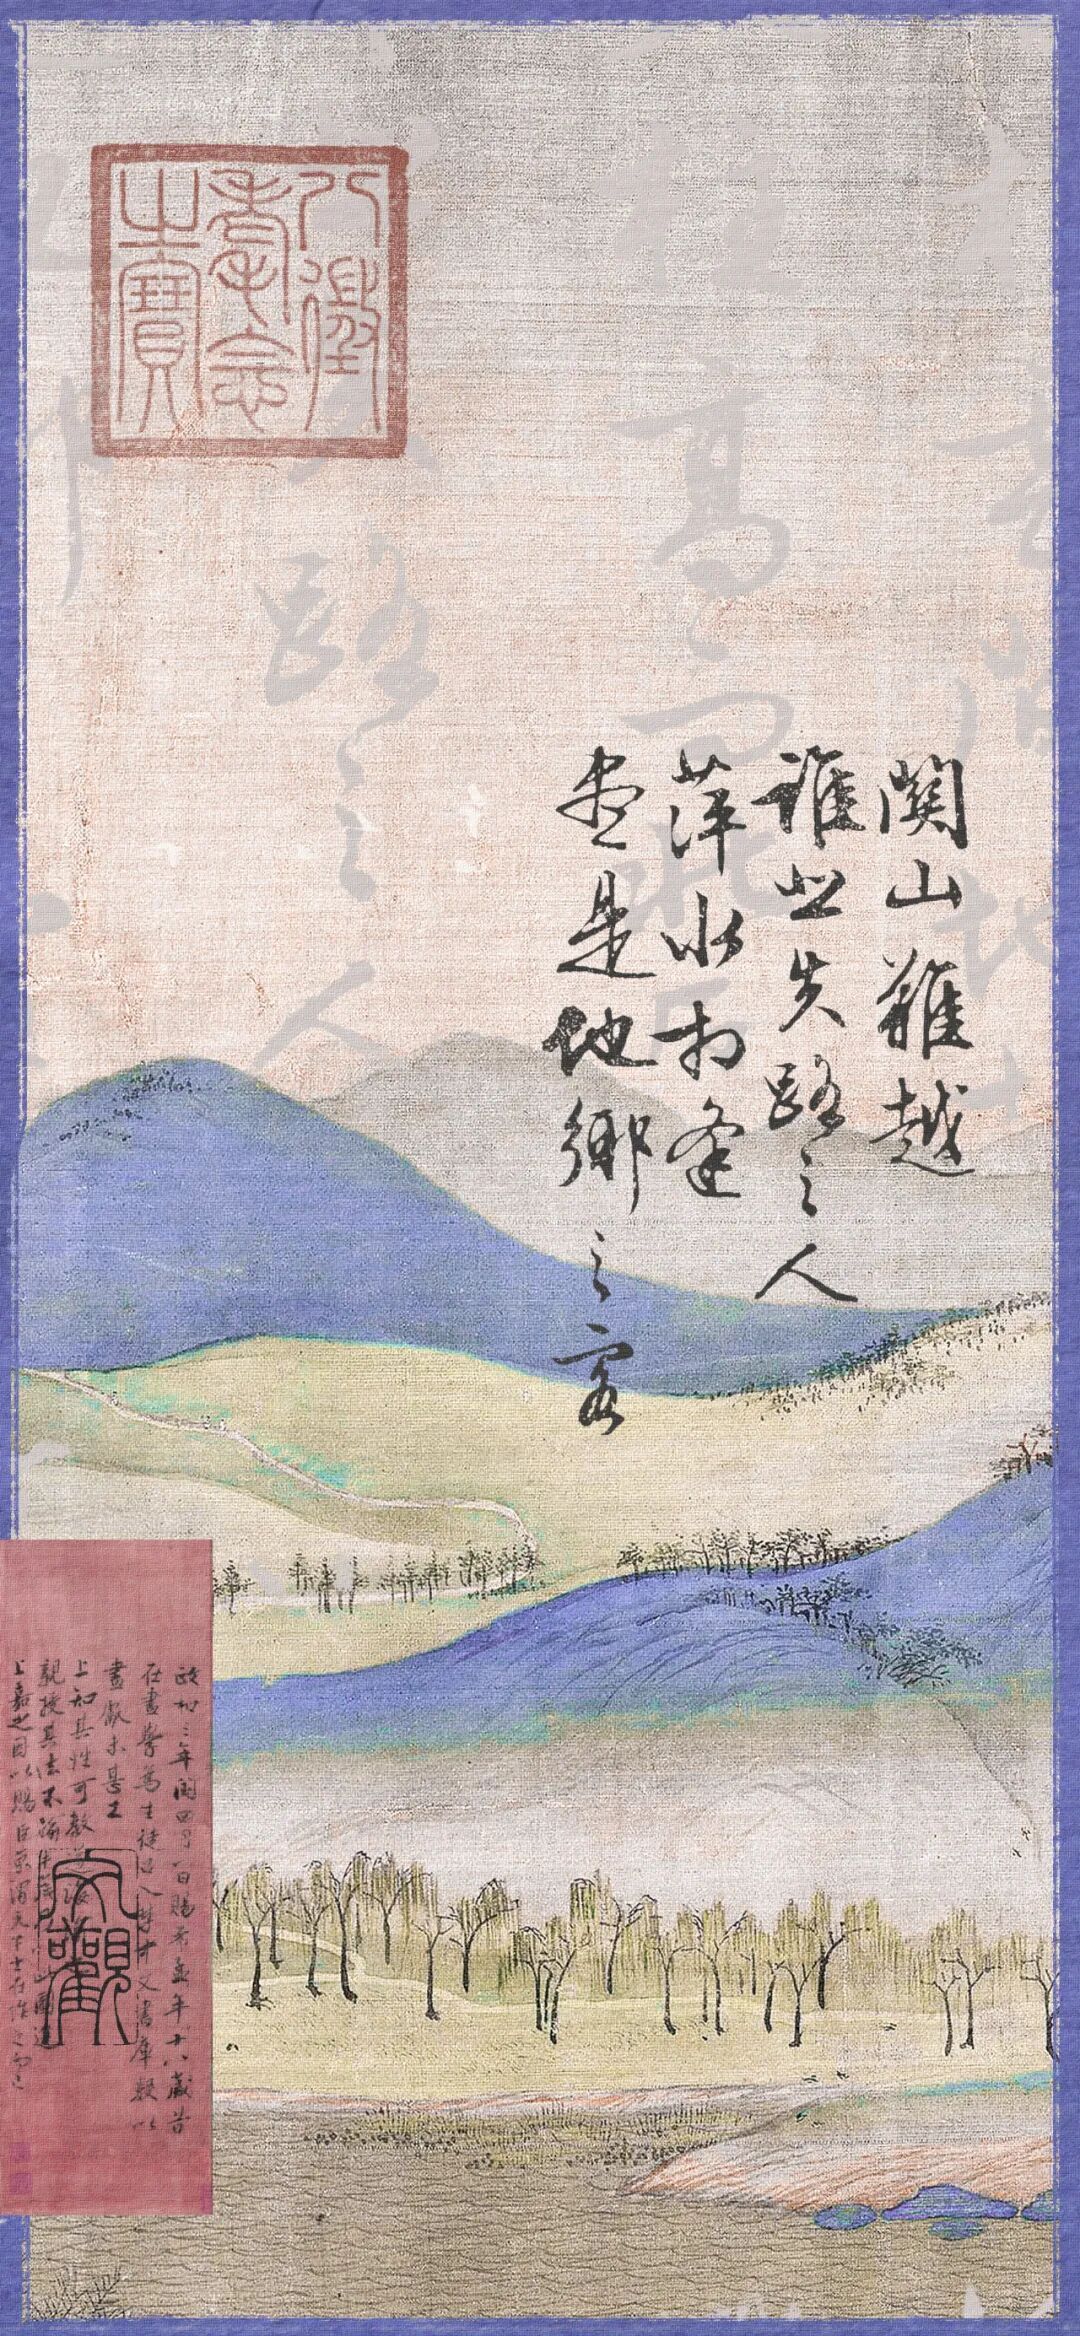 八徵
耄念
之寶
關山難越
誰悲失路之人
萍水相逢
盡是他鄉之客
路之人
政和三年閏四月一日賜希孟年十八歲昔
在畫學為生徒召入禁中文書庫數以
畫獻未甚工
上知其性可教遂誨
親授其法不踰半歲圖進
上嘉之因以賜臣京謂天下士在作之而已
大觀